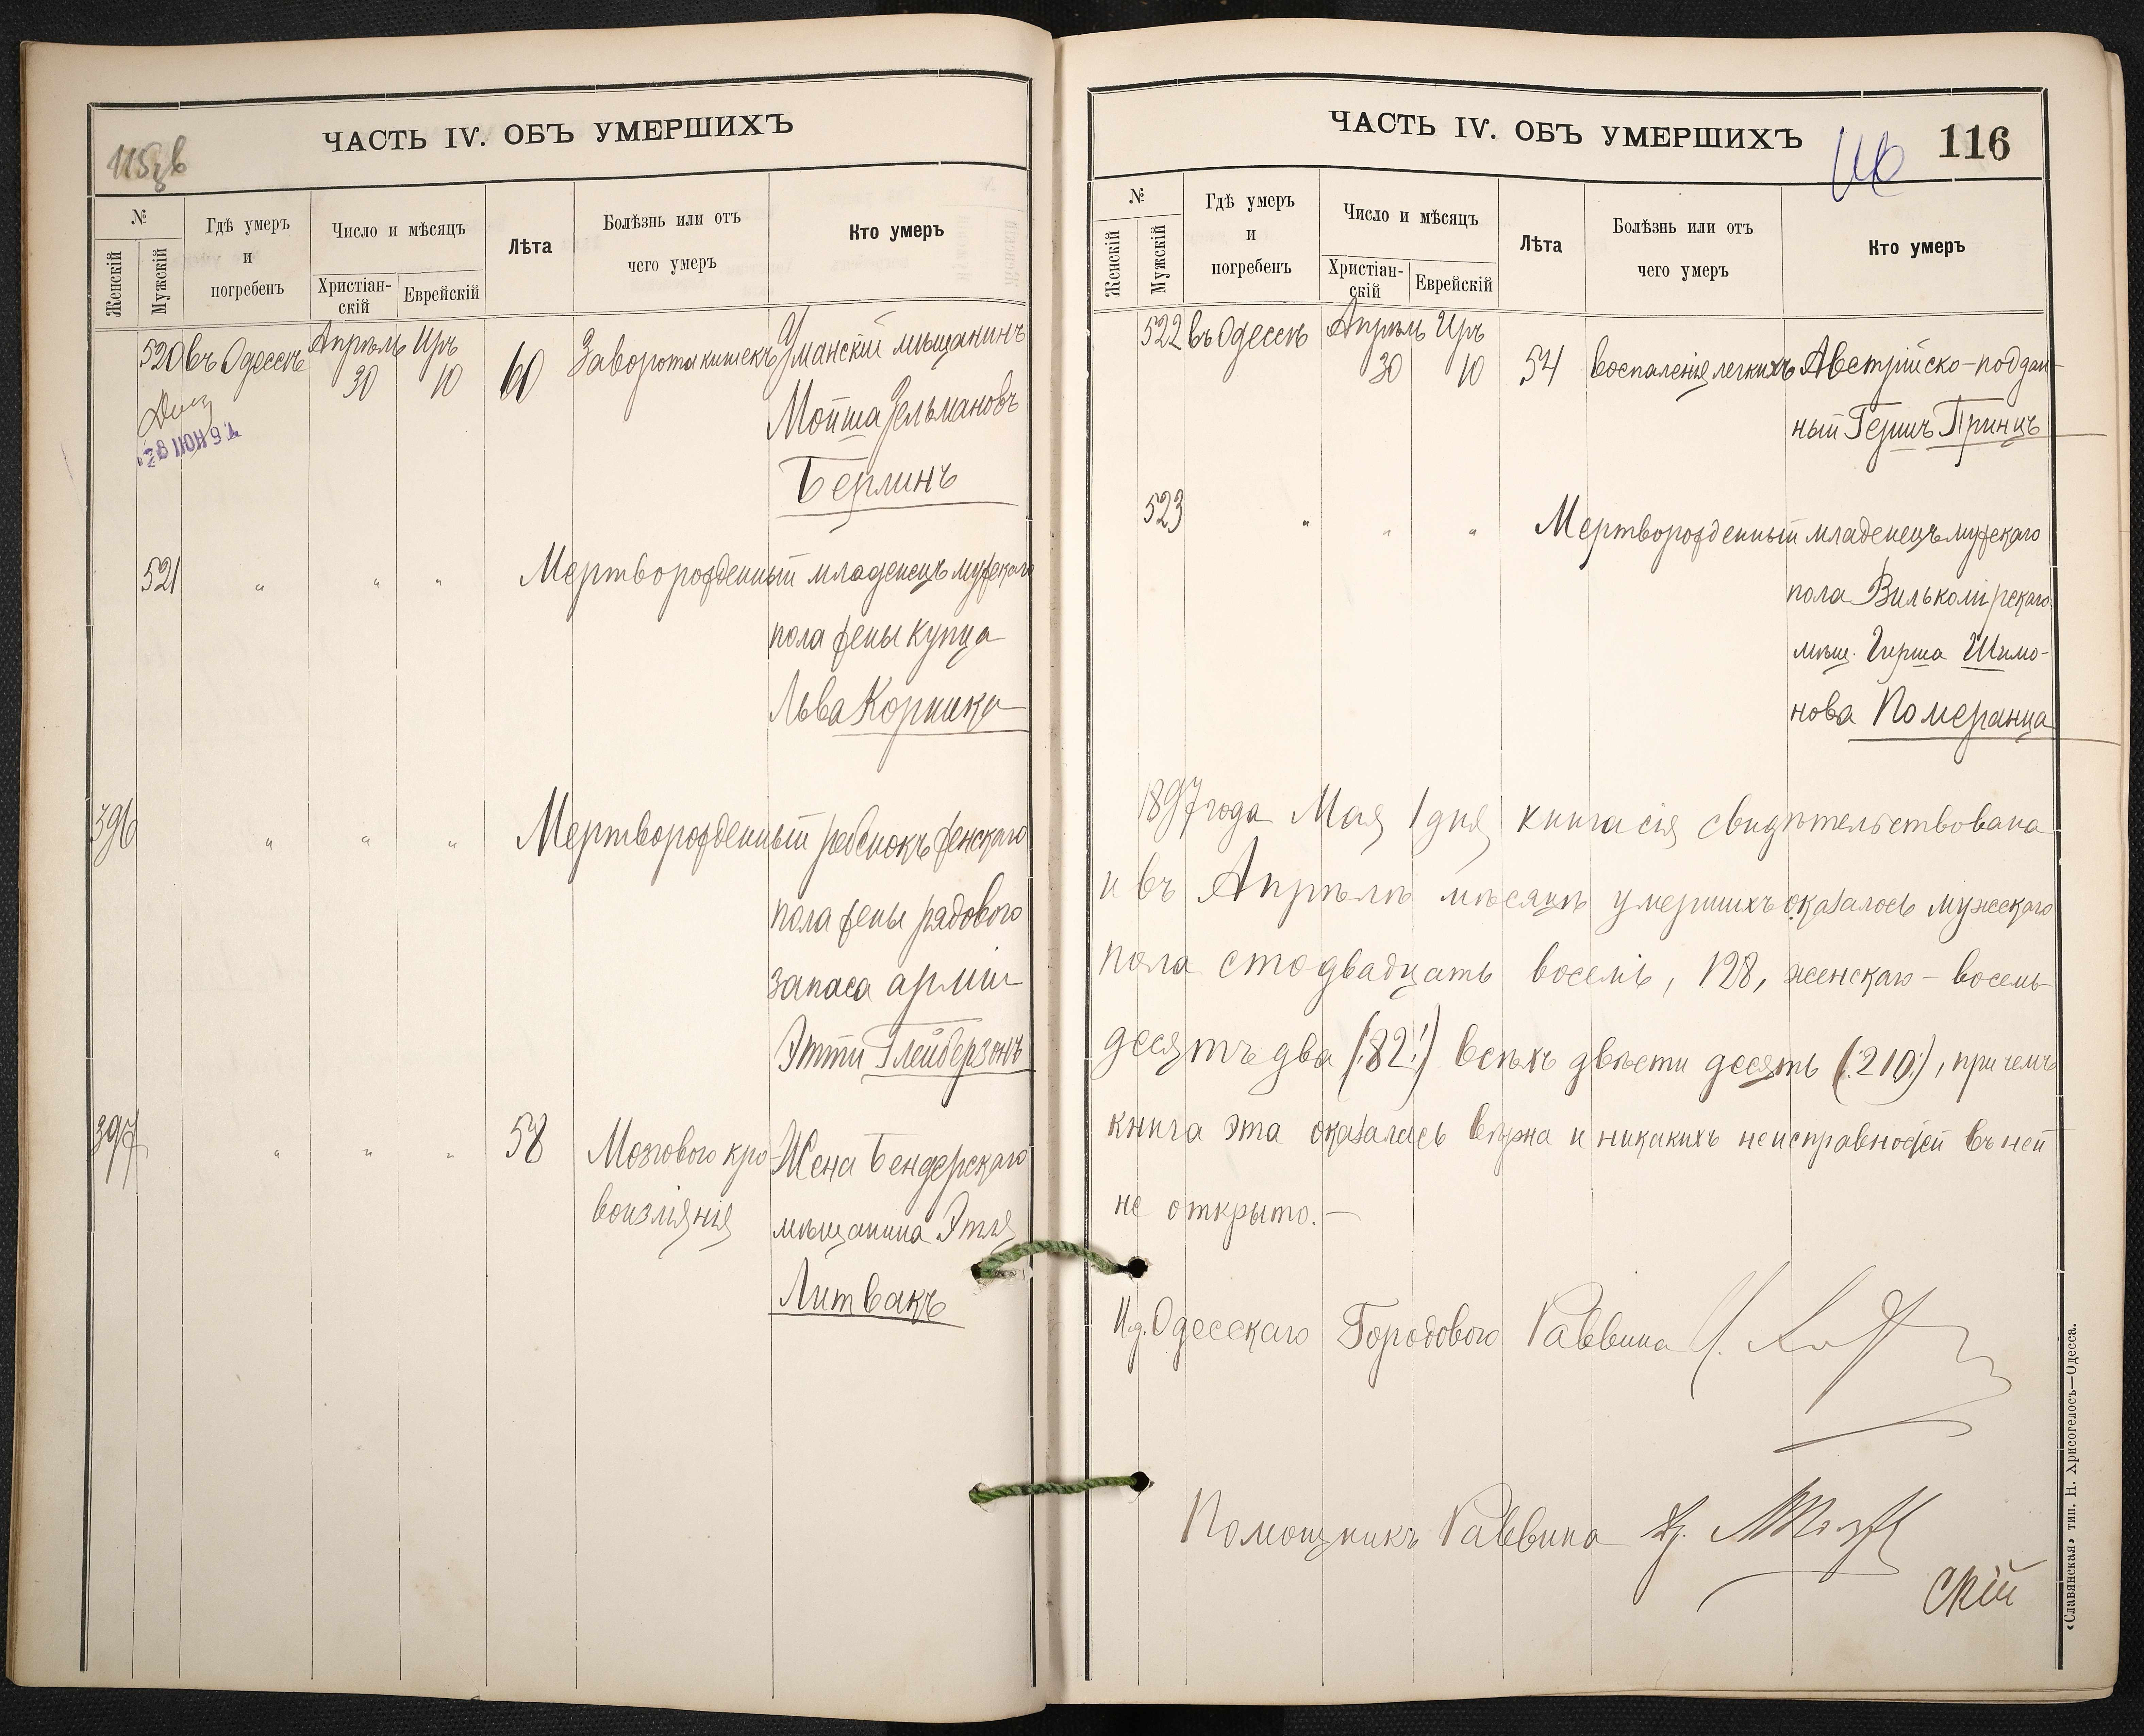 ЧАСТЬ IV. ОБЪ УМЕРШИХЪ
№
Женскій
Мужскій
Гдѣ умеръ
и
погребенъ
Число и мѣсяцъ
Христіан-
скій
Еврейскій
Лѣта
Болѣзнь или отъ
чего умеръ
Кто умеръ
520 въ Одессѣ Апрѣль Иръ 60 Заворота кишекъ Уманскій мѣщанинъ
30 10
Мойша Зельмановъ
28 ІЮН 91
Берлинъ
521 " " " Мертворожденный младенецъ мужскаго
пола жены купца
Льва Корника
396 " " " Мертворожденный ребенокъ женскаго
пола жены рядового
запаса арміи
Этти Глейберзонъ
397 " " " 58 Мозгового кро- Жена Бендерскаго
воизліянія мѣщанина Этля
Литвакъ
ЧАСТЬ IV. ОБЪ УМЕРШИХЪ
116
116
№
Женскій
Мужскій
Гдѣ умеръ
и
погребенъ
Число и мѣсяцъ
Христіан-
скій
Еврейскій
Лѣта
Болѣзнь или отъ
чего умеръ
Кто умеръ
522 въ Одессѣ Апрѣль Иръ
30 10 54 воспаленія легкихъ Австрійско-поддан-
ный Гершъ Принцъ
523 " " " Мертворожденный младенецъ мужскаго
пола Вилькомірскаго
мѣщ. Гирша Шимо-
нова Померанца
1897 года Мая 1 дня книга сія свидѣтельствована
и въ Апрѣлѣ мѣсяцѣ умершихъ оказалось мужскаго
пола сто двадцать восемь, 128, женскаго - восемь-
десятъ два (:82:) всѣхъ двѣсти десять (:210:), при чемъ
книга эта оказалась вѣрна и никакихъ неисправностей въ ней
не открыто.-
И.д. Одесскаго Городового Раввина
Помощникъ Раввина
скій
«Славянская» тип. Н. Хрисогелосъ—Одесса.